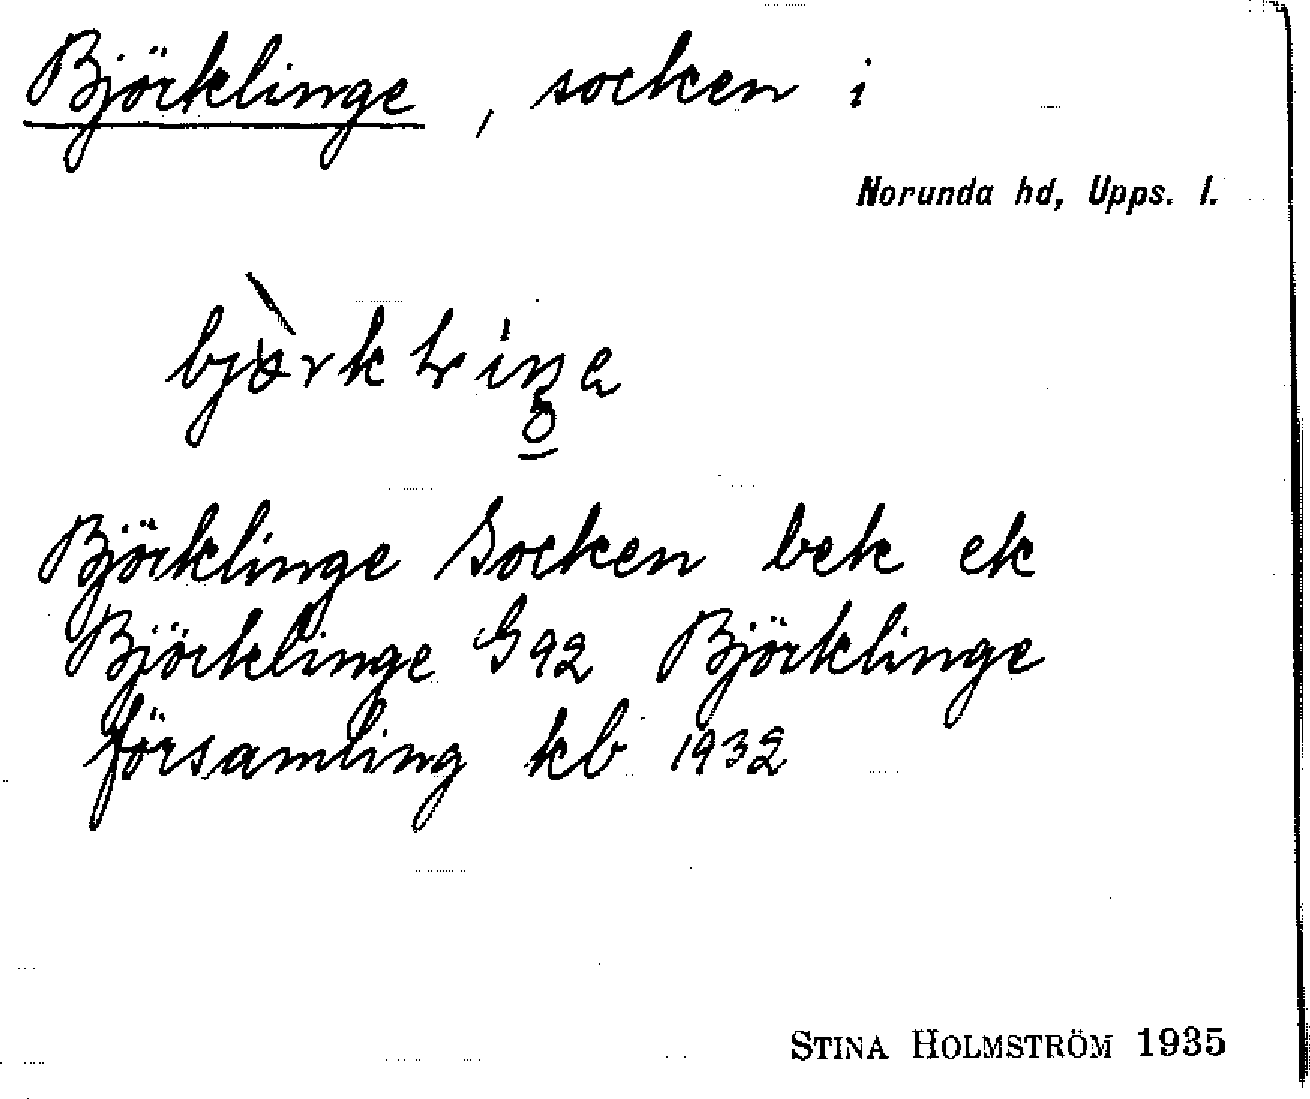 Björklinge, socken i
Norunda hd, Upps. l.
Björklinge Socken bek ek
Björklinge G 92 Björklinge
församling kb 1932
STINA HOLMSTRÖM 1935